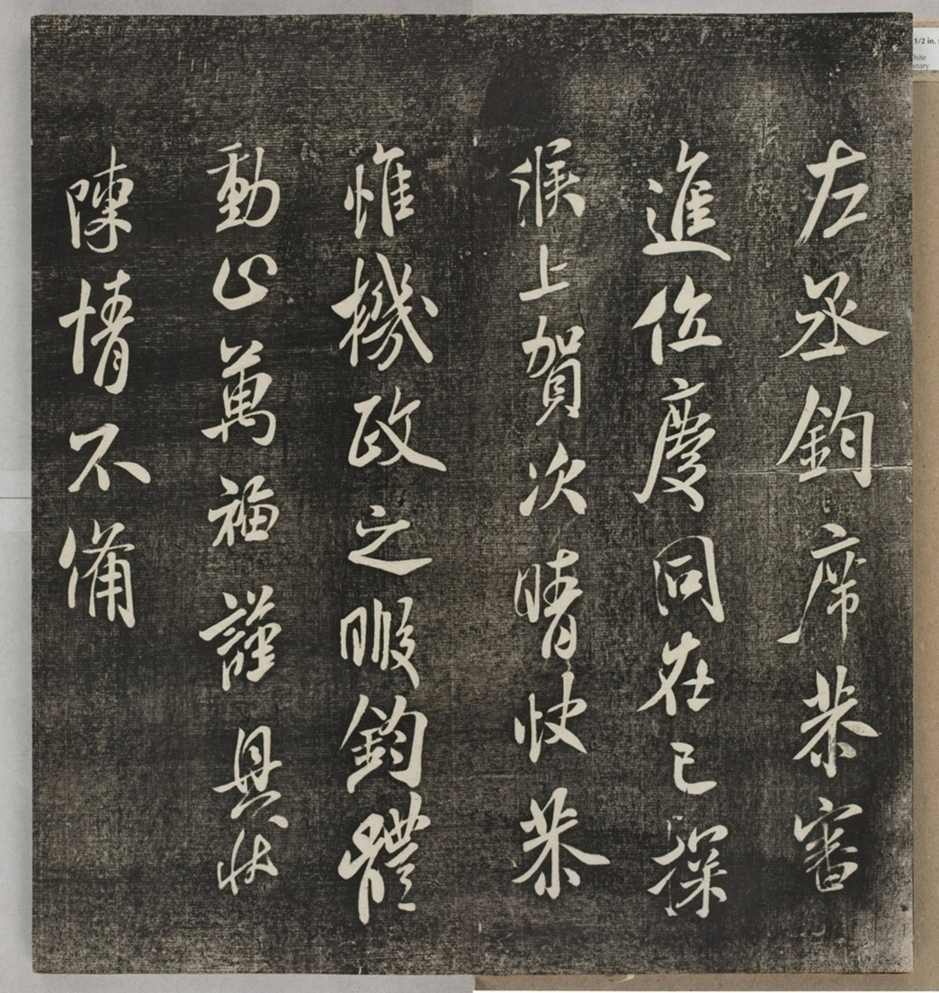 左丞鈞席恭審
進位慶同在己深
候上賀次晴快恭
惟機政之暇鈞體
動止萬福謹具狀
陳情不備
1/2 in.